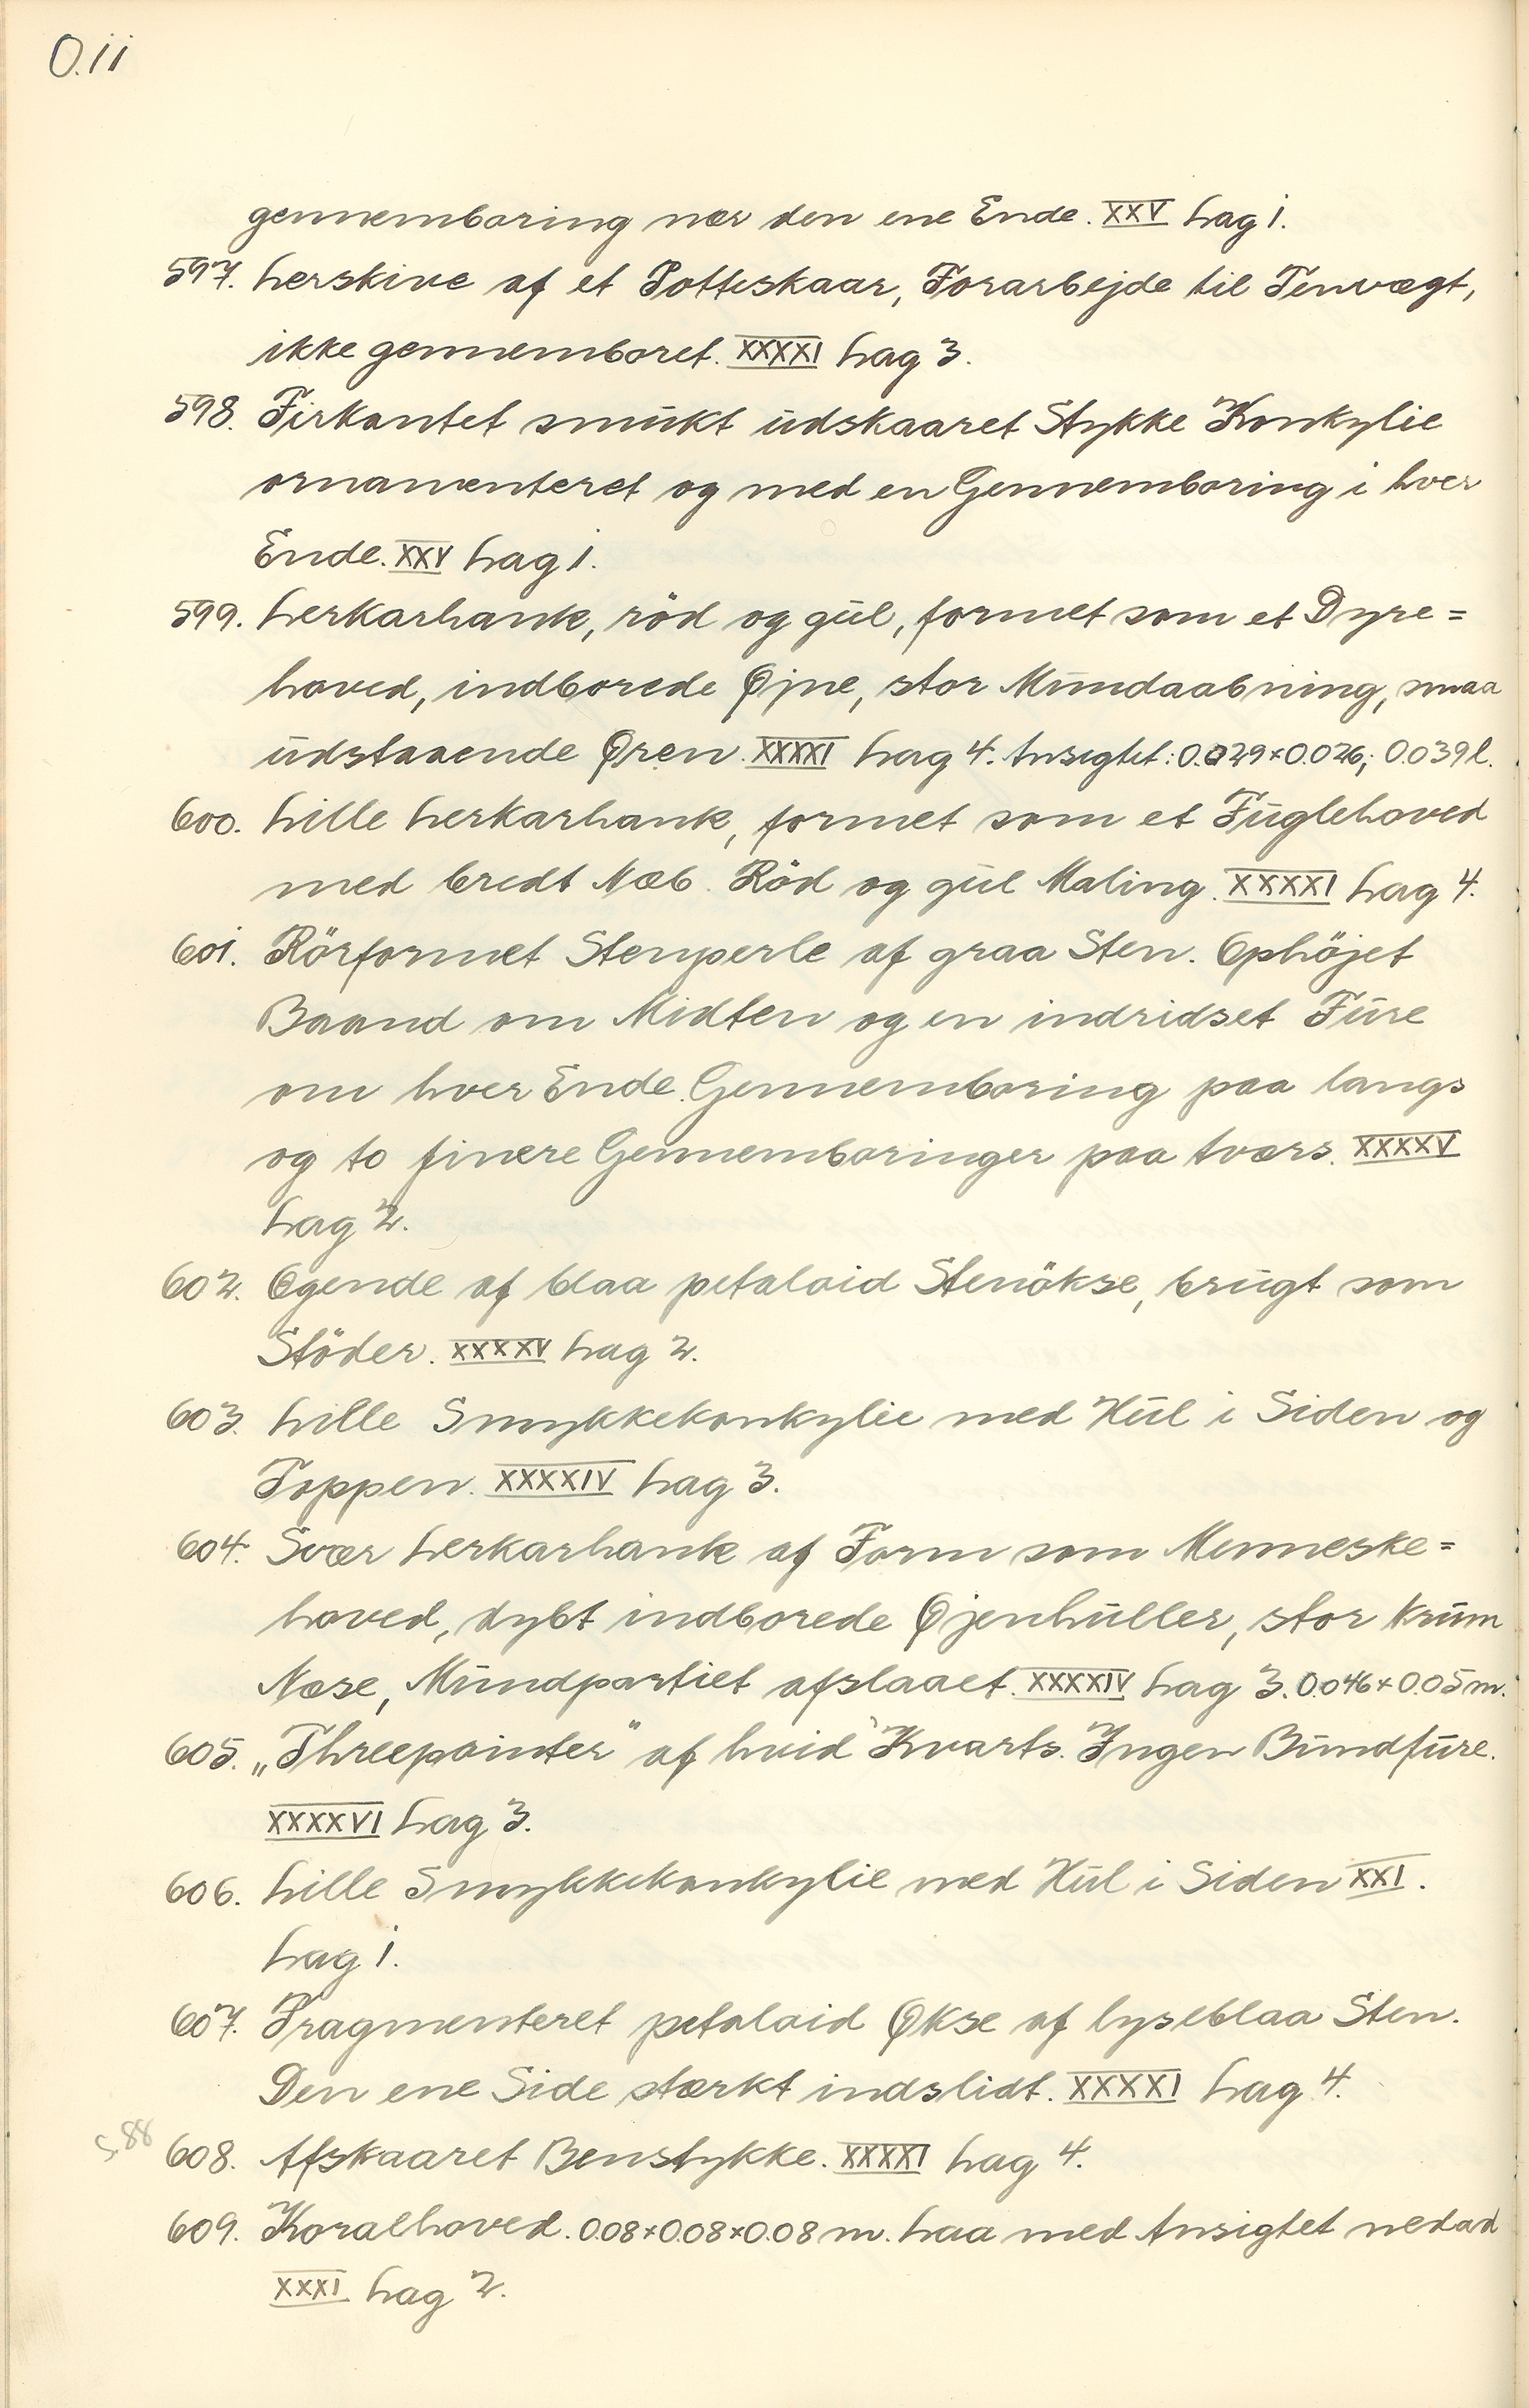 O.11
gennemboring nær den ene Ende. XXV Lag 1.
597. Lerskive af et Potteskaar, Forarbejde til Tenvægt,
ikke gennemboret. XXXXI Lag 3.
598. Firkantet smukt udskaaret Stykke Konkylie
ornamenteret og med en Gennemboring i hver
Ende. XXV Lag 1.
599. Lerkarhank, röd og gul, formet som et Dyre=
hoved, indborede Øjne, stor Mundaabning, smaa
udstaaende Øren. XXXXI Lag 4. Ansigtet: 0.029×0.026; 0.039 l.
600. Lille Lerkarhank, formet som et Fuglehoved
med bredt Næb. Röd og gul Maling. XXXXI Lag 4.
601. Rörformet Stenperle af graa Sten. Ophöjet
Baand om Midten og en indridset Fure
om hver Ende. Gennemboring paa langs
og to finere Gennemboringer paa tværs. XXXXV
Lag 2.
602. Egende af blaa petaloid Stenökse, brugt som
Stöder. XXXXV Lag 2.
603. Lille Smykkekonkylie med Hul i Siden og
Toppen. XXXXIV Lag 3.
604. Svær Lerkarhank af Form som Menneske=
hoved, dybt indborede Øjenhuller, stor krum
Næse, Mundpartiet afslaaet. XXXXIV Lag 3. 0.046×0.05 m.
605. „Threepointer" af hvid Kvarts. Ingen Bundfure.
XXXXVI Lag 3.
606. Lille Smykkekonkylie med Hul i Siden XXI.
Lag 1.
607. Fragmenteret petaloid Økse af lyseblaa Sten.
Den ene Side stærkt indslidt. XXXXI Lag 4.
S. 88 608. Afskaaret Benstykke. XXXXI Lag 4.
609. Koralhoved. 0.08×0.08×0.08 m. Laa med Ansigtet nedad
XXXI Lag 2.